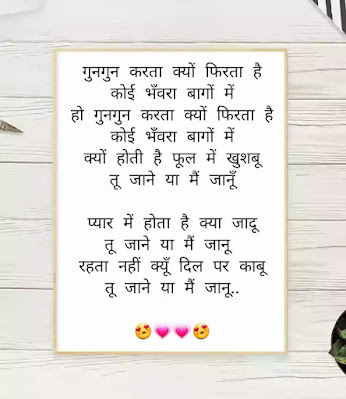 गुनगुन करता क्यों फिरता है
कोई भँवरा बागों में
हो गुनगुन करता क्यों फिरता है
कोई भँवरा बागों में
क्यों होती है फूल में खुशबू
तू जाने या मैं जानूँ
प्यार में होता है क्या जादू
तू जाने या मैं जानू
रहता नहीं क्यूँ दिल पर काबू
तू जाने या मैं जानू..
😍💗💗😍